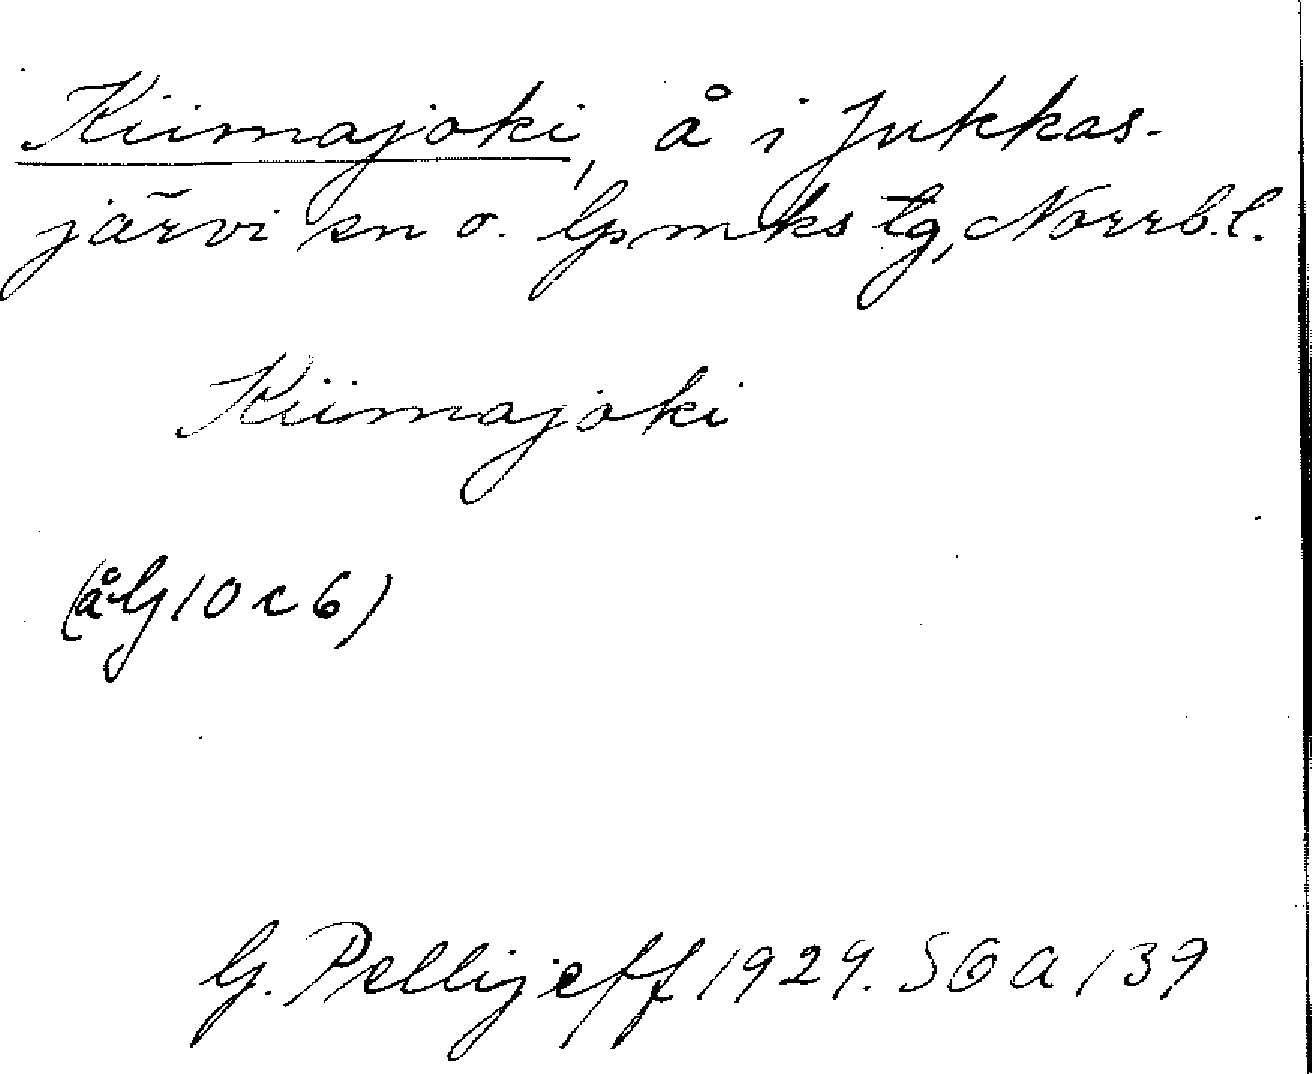 Kiimajoki, å i Jukkas-
järvi sn o. lpmks tg, Norrb.l.
Kiimajoki
(åG 10 c 6)
G. Pellijeff 1929. SOA 139